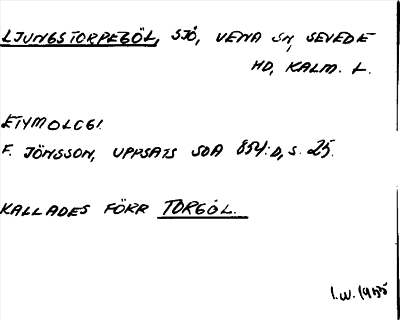 LJUNGSTORPEGÖL, SJÖ, VENA SN, SEVEDE
HD, KALM. L.
ETYMOLOGI.
F. JÖNSSON, UPPSATS SOA 854:D, S. 25.
KALLADES FÖRR TORGÖL.
I.W. 1955